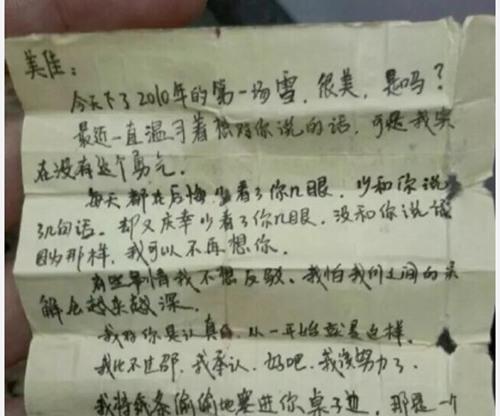 美佳：
今天下了2010年的第一场雪，很美，是吗？
最近一直温习着想对你说的话，可是我实
在没有这个勇气。
每天都在后悔少看了你几眼，少和你说
了几句话。却又庆幸少看了你几眼，没和你说话
因为那样，我可以不再想你。
有些事情我不想反驳。我怕我们之间的误
解会越来越深。
我对你是认真的，从一开始就是这样。
我比不过邵，我承认，好吧，我该努力了。
我将纸条偷偷地塞进你桌子边，那是一个